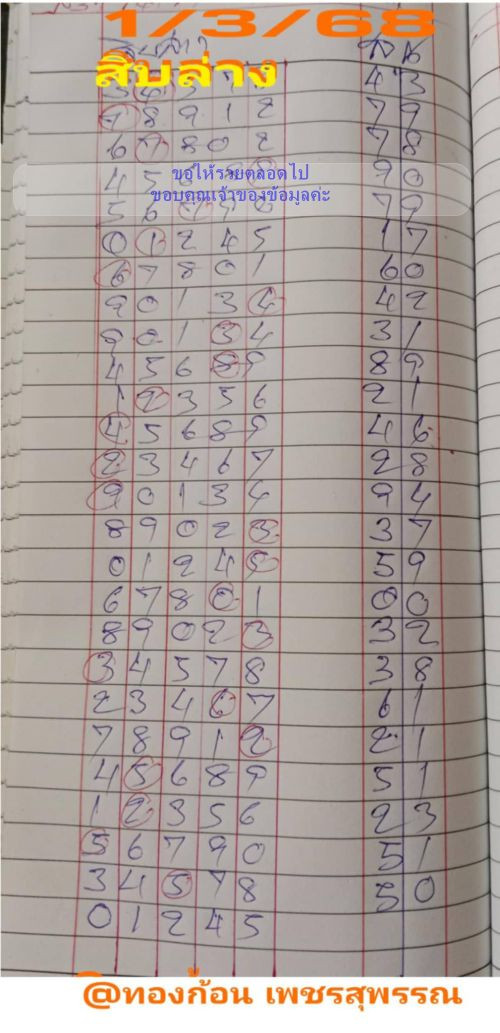 1/3/68
สิบล่าง
4 3
7 8 9 1 2 7 9
6 7 8 0 2 7 8
4 5 9 0
ขอให้รวยตลอดไป
ขอบคุณเจ้าของข้อมูลค่ะ
5 6 7 9
0 1 2 4 5 1 7
6 7 8 0 1 6 0
9 0 1 3 4 4 2
9 0 1 3 4 3 1
4 5 6 8 9 8 9
1 2 3 5 6 2 1
4 5 6 8 9 4 6
2 3 4 6 7 2 8
9 0 1 3 4 9 4
8 9 0 2 3 3 7
0 1 2 4 5 5 9
6 7 8 0 1 0 0
8 9 0 2 3 3 2
3 4 5 7 8 3 8
2 3 4 6 7 6 1
7 8 9 1 2 2 1
4 5 6 8 9 5 1
1 2 3 5 6 2 3
5 6 7 9 0 5 1
3 4 5 7 8 5 0
0 1 2 4 5
@ทองก้อน เพชรสุพรรณ